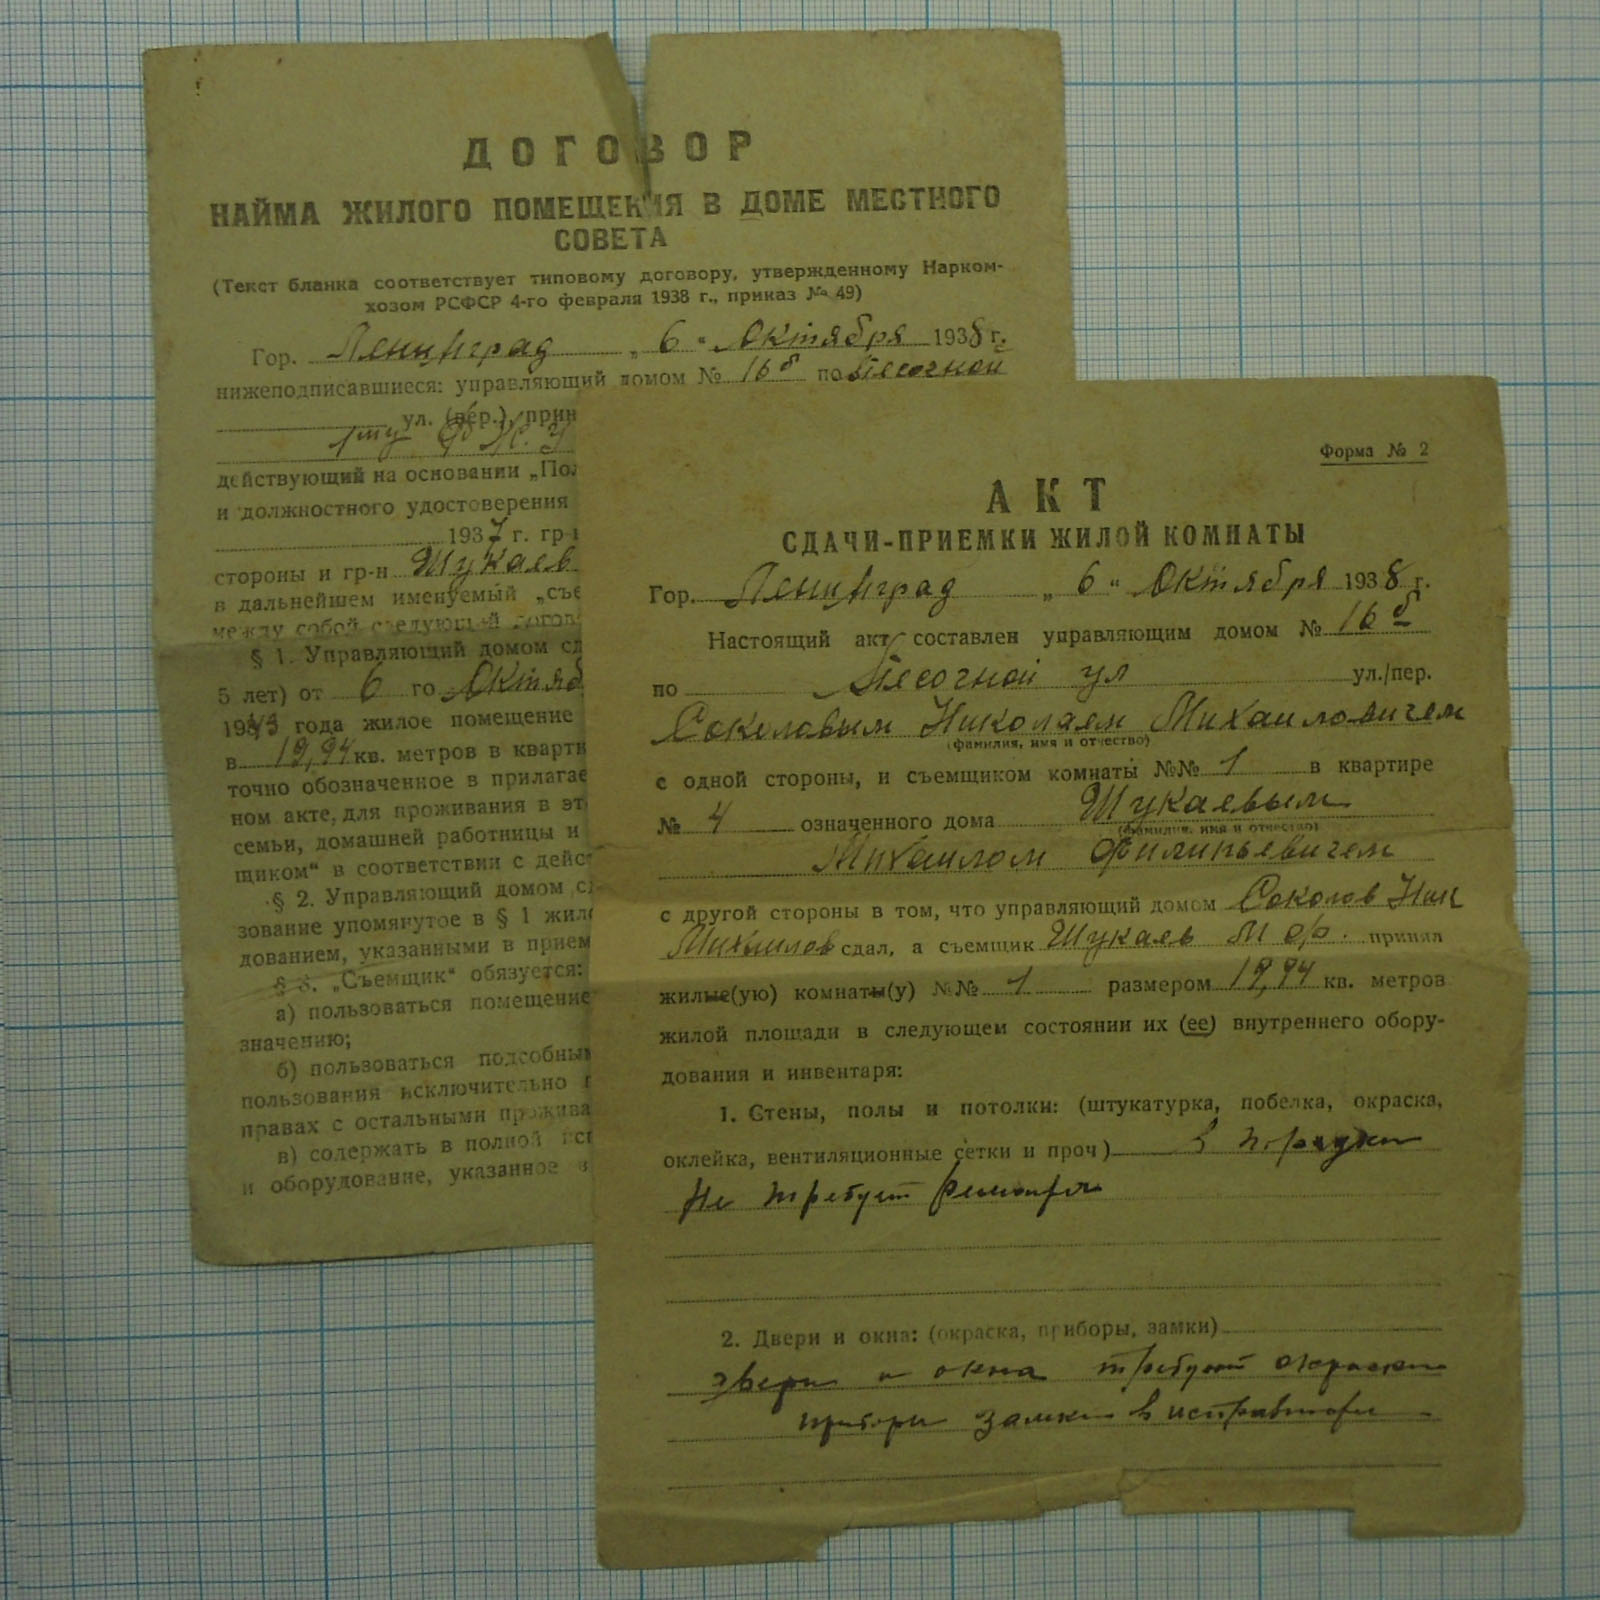 ДОГОВОР
НАЙМА ЖИЛОГО ПОМЕЩЕНИЯ В ДОМЕ МЕСТНОГО
СОВЕТА
(Текст бланка соответствует типовому договору, утвержденному Нарком-
хозом РСФСР 4-го февраля 1938 г., приказ № 49)
Гор. Ленинград „ 6 " Октября 1938 г.
нижеподписавшиеся: управляющий домом № 16 б по Песочной
ул. (пер.) прин
действующий на основании „Пол
и должностного удостоверения
1937 г. гр-
стороны и гр-н Шукаев
в дальнейшем именуемый „съе
между собой следующий догов
§ 1. Управляющий домом сд
5 лет) от 6 го Октяб
1943 года жилое помещение
в 19,94 кв. метров в кварти
точно обозначенное в прилагае
ном акте, для проживания в эт
семьи, домашней работницы и
щиком" в соответствии с дейс
§ 2. Управляющий домом с
зование упомянутое в § 1 жил
дованием, указанными в прием
§ 3. „Съемщик" обязуется:
а) пользоваться помещение
значению;
б) пользоваться подсобны
пользования исключительно п
правах с остальными прожива
в) содержать в полной исп
и оборудование, указанное в
Форма № 2
АКТ
СДАЧИ-ПРИЕМКИ ЖИЛОЙ КОМНАТЫ
Гор. Ленинград „ 6 " Октября 1938 г.
Настоящий акт составлен управляющим домом № 16 б
по Песочной ул ул./пер.
Соколовым Николаем Михайловичем
(фамилия, имя и отчество)
с одной стороны, и съемщиком комнаты №№ 1 в квартире
№ 4 означенного дома Шукаевым
(фамилия, имя и отчество)
Михаилом Филипьевичем
с другой стороны в том, что управляющий домом Соколов Ник
Михайлов сдал, а съемщик Шукаев М Ф. принял
жилые(ую) комнаты(у) №№ 1 размером 19,94 кв. метров
жилой площади в следующем состоянии их (ее) внутреннего обору-
дования и инвентаря:
1. Стены, полы и потолки: (штукатурка, побелка, окраска,
оклейка, вентиляционные сетки и проч) В порядки
Не требует ремонта
2. Двери и окна: (окраска, приборы, замки)
двери и окна требуют окраски
приборы замки в исправности